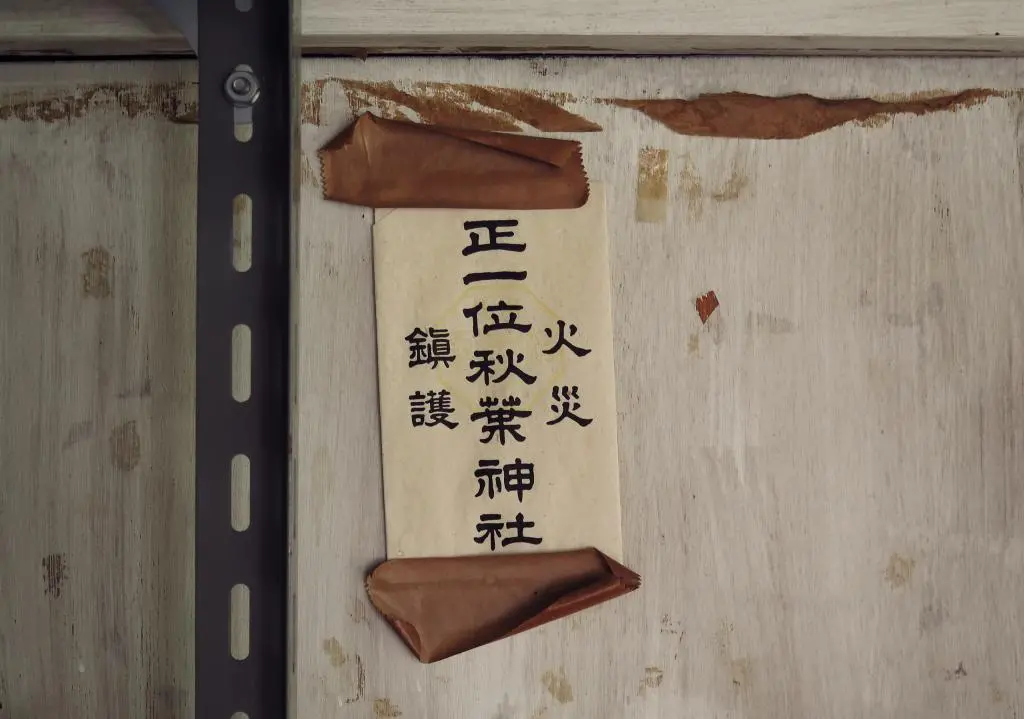 火災
正一位秋葉神社
鎮護